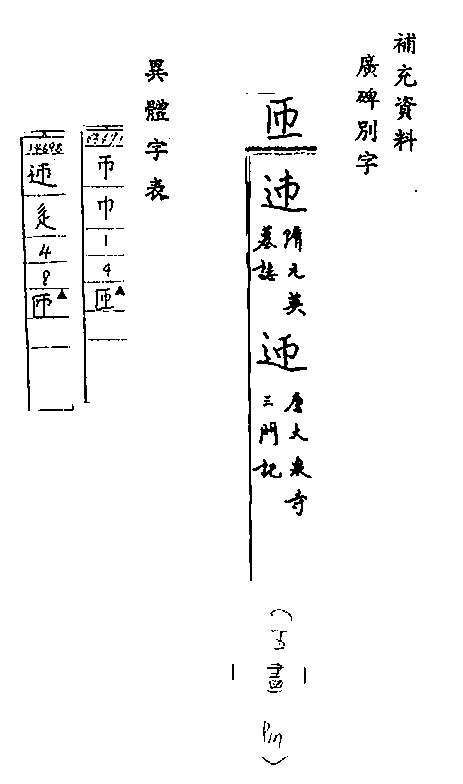 補充資料
廣碑別字
匝
隋元英
墓誌
迊
唐大泉寺
三門記
(五畫
異體字表
帀
巾
1
4
匝▲
迊
辵
4
8
匝▲